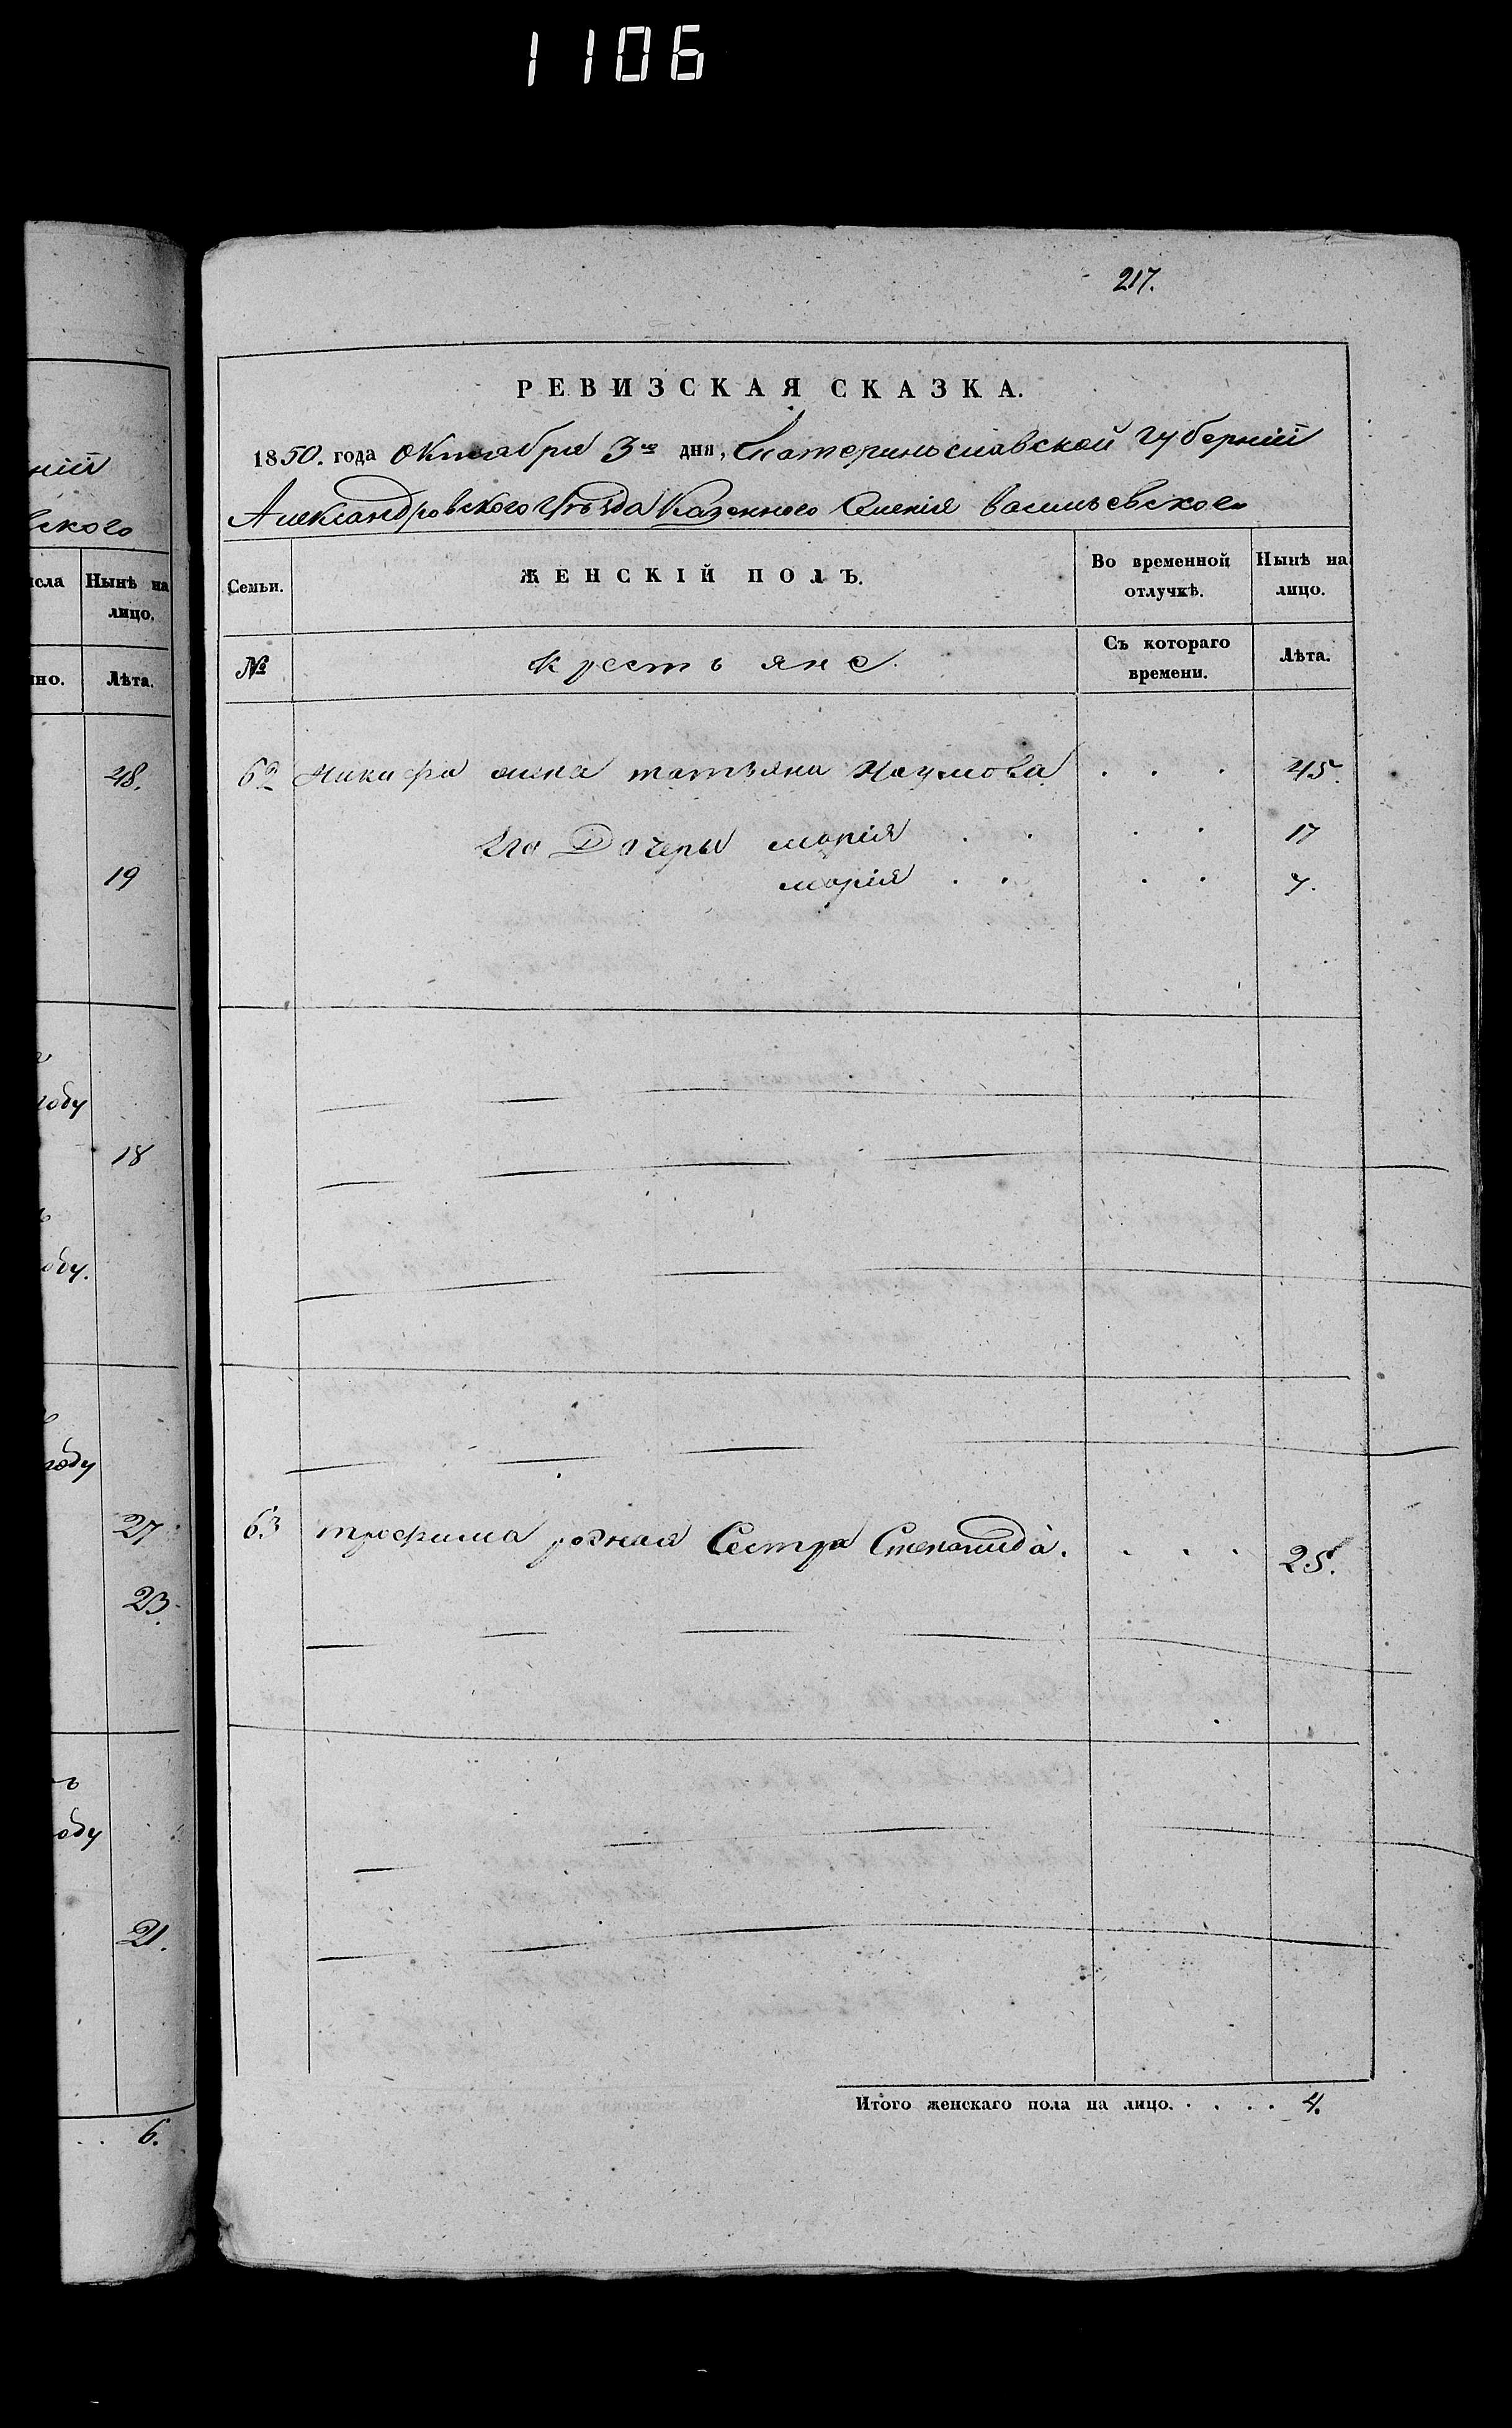 1106
ній
ского
исла Нынѣ на
лицо.
но. Лѣта.
48.
19
году
18
оду.
году
27
23.
ъ
оду
21.
. . 6.
217.
РЕВИЗСКАЯ СКАЗКА.
1850. года Октября 3го дня, Екатеринославской губерній
Александровского уѣзда Казенного Именія васильевского
Семьи. ЖЕНСКІЙ ПОЛЪ. Во временной отлучкѣ. Нынѣ на лицо.
№ крестьяне. Съ котораго времени. Лѣта.
62 жена татьяна Наумова . . . 45.
его Дочеры марія . . . . 17
марія . . . . 7.
63 трофима родная Сестра Степанида. . . . 25.
Итого женскаго пола на лицо. . . . . 4.